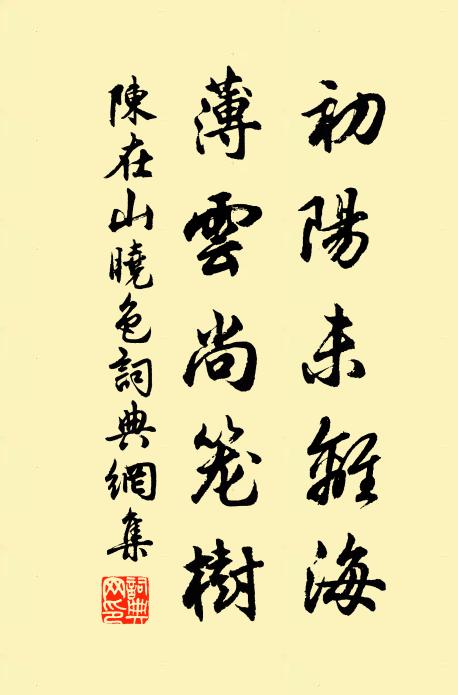 初陽未離海
薄雲尚笼樹
陳在山曉色詞典網集
詞典网印